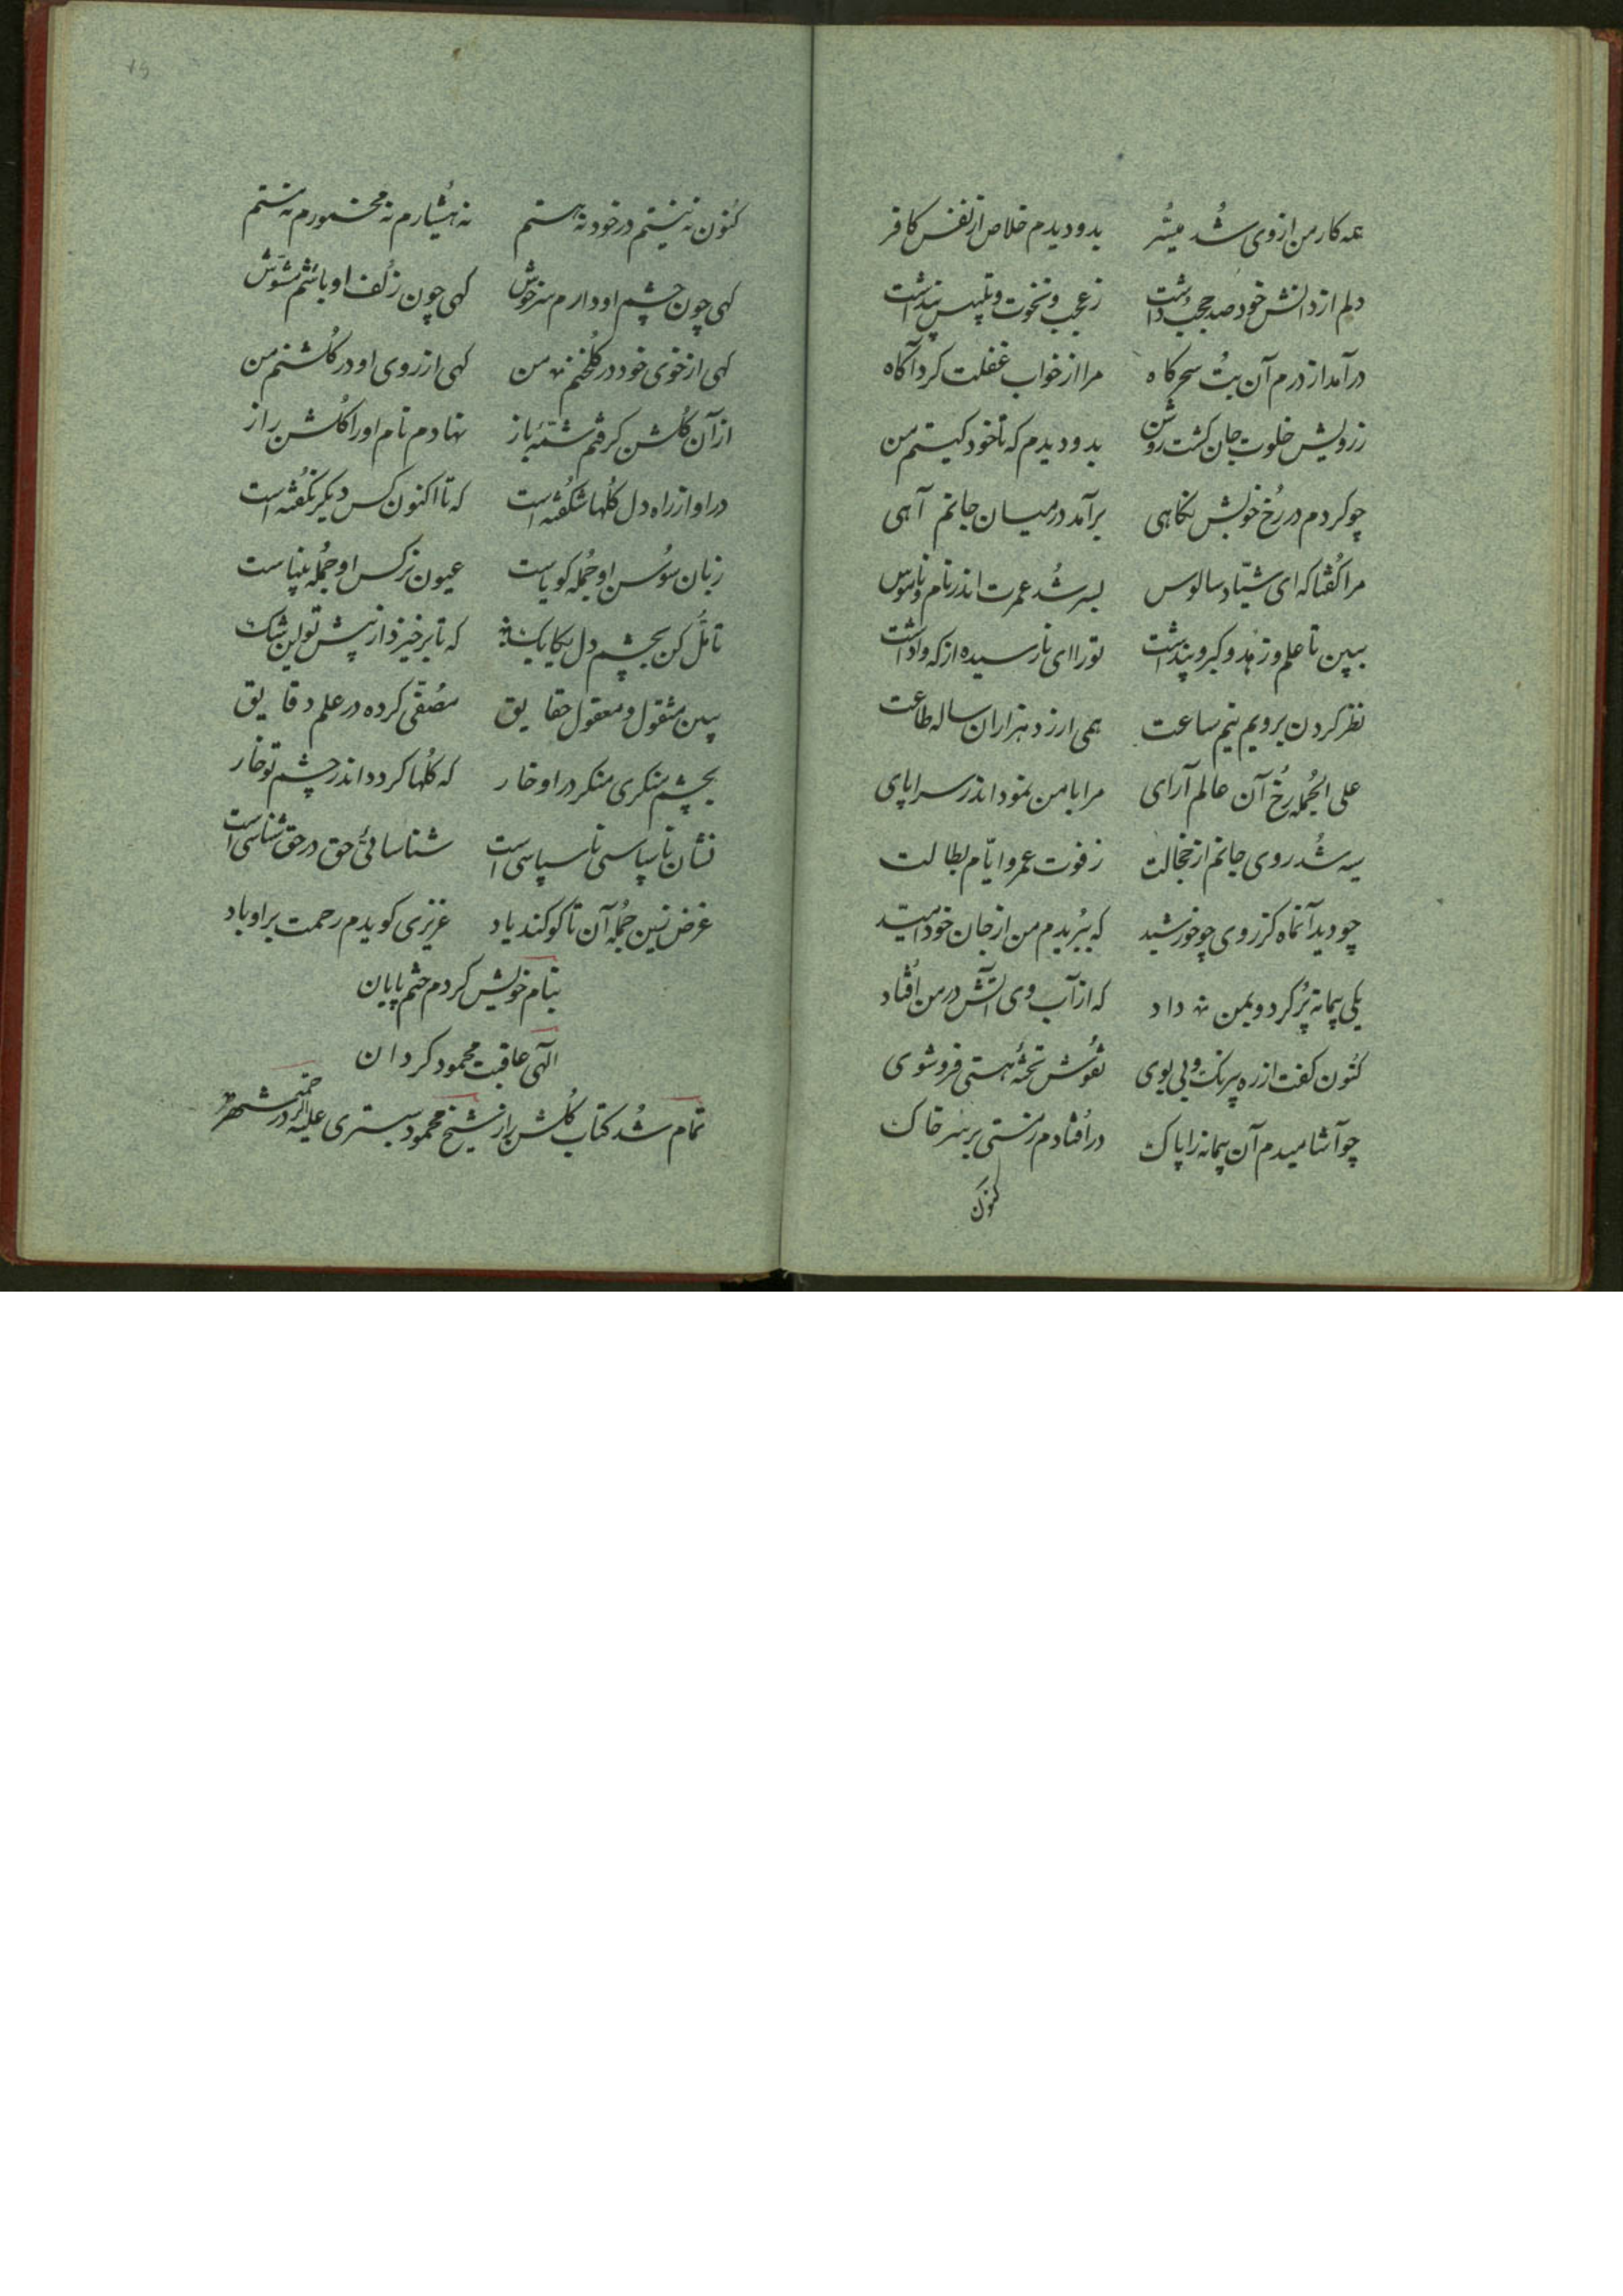 همه کار من از وی شد میسّر بدو دیدم خلاص از نفس کافر
دلم از دانش خود صد حجب داشت ز عجب و نخوت و تلبیس پنداشت
درآمد از درم آن بُت سحرکاه مرا از خواب غفلت کرد آکاه
ز رویش خلوت جان کشت روشن بدو دیدم که تا خود کیستم من
چو کردم در رُخ خویش نکاهی برآمد در میان جانم آهی
مرا کُفتا که ای شیّاد سالوس بسر شُد عمرت اندر نام و ناموس
ببین تا علم و زُهد و کبر و پنداشت تو را ای نارسیده از که واداشت
نظر کردن برویم نیم ساعت همی ارزد هزاران ساله طاعت
علی الجُمله رُخ آن عالم آرای مرا با من نمود اندر سراپای
سیه شُد روی جانم از خجالت ز فوت عمر و ایّام بطالت
چو دید آنماه کز روی چو خورشید که ببُریدم من از جان خود امّید
یکی پیمانه پُر کرد و بمن داد که از آب وی آتش در من اُفتاد
کنُون کفت از ره بیرنک و بی بوی نقوُش تختهٔ هستی فروشوی
چو آشامیدم آن پیمانه را پاک دراُفتادم ز مستی بر سر خاک
کنون
کنُون نه نیستم در خود نه هستم نه هشیارم نه مخمورم نه مستم
کهی چون چشم او دارم سر خوش کهی چون زُلف او باشم مشوّش
کهی از خوی خود در کُلخنم من کهی از روی او در کُلشنم من
از آن کُلشن کرفتم شمّهٔ باز نهادم نام او را کُلشن راز
در او از راه دل کُلها شکُفته است که تا اکنون کس دیکر نکُفته است
زبان سوُسن او جُمله کویاست عیون نرکس او جُمله بیناست
تأمّل کن بچشم دل یکایک که تا برخیزد از پیش تو این شک
ببین منقول و معقول حقایق مصُفّی کرده در علم دقایق
بچشم منکری منکر در او خار که کُلها کردد اندر چشم تو خار
نشان ناسپاسی ناسپاسی است شناسائیّ حق در حق شناسی است
غرض زین جُمله آن تا کو کند یاد عزیزی کویدم رحمت بر او باد
بنام خویش کردم ختم پایان
الٓهی عاقبت محمود کردان
تمام شُد کتاب کُلشن راز شیخ محمود شبستری علیه الرحمه در شهر